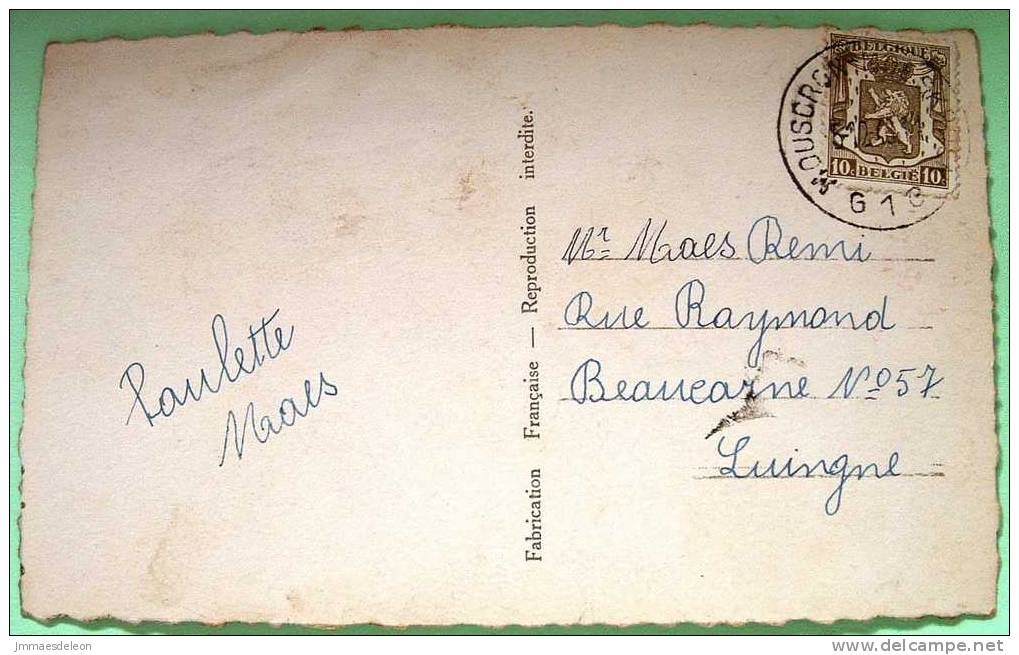 BELGIQUE
10c BELGIË 10c
MOUSCRON
G 1 G
Mr Maes Remi
Rue Raymond
Beaucarne No 57
Luingne
Paulette
Maes
Fabrication Française — Reproduction interdite.
jmmaesdeleon
www.delcampe.net